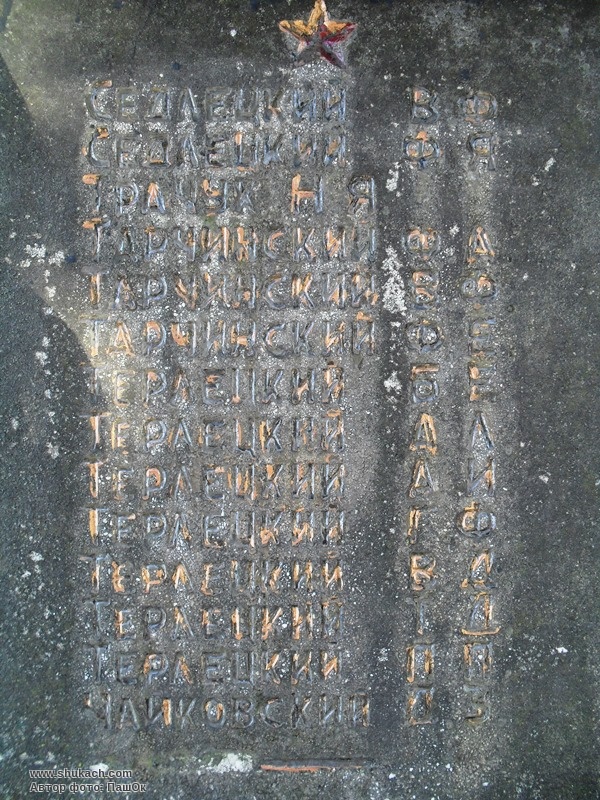 СЕДЛЕЦКИЙ В Ф
СЕДЛЕЦКИЙ Ф Я
ТРАЧУК Н Я
ТАРЧИНСКИЙ Ф А
ТАРЧИНСКИЙ В В
ТАРЧИНСКИЙ Ф Е
ТЕРЛЕЦКИЙ Б Е
ТЕРЛЕЦКИЙ Д А
ТЕРЛЕЦКИЙ Д И
ТЕРЛЕЦКИЙ Г Ф
ТЕРЛЕЦКИЙ В Д
ТЕРЛЕЦКИЙ І Д
ТЕРЛЕЦКИЙ П П
ЧАЙКОВСКИЙ З
www.shukach.com
Автор фото: ПашОк